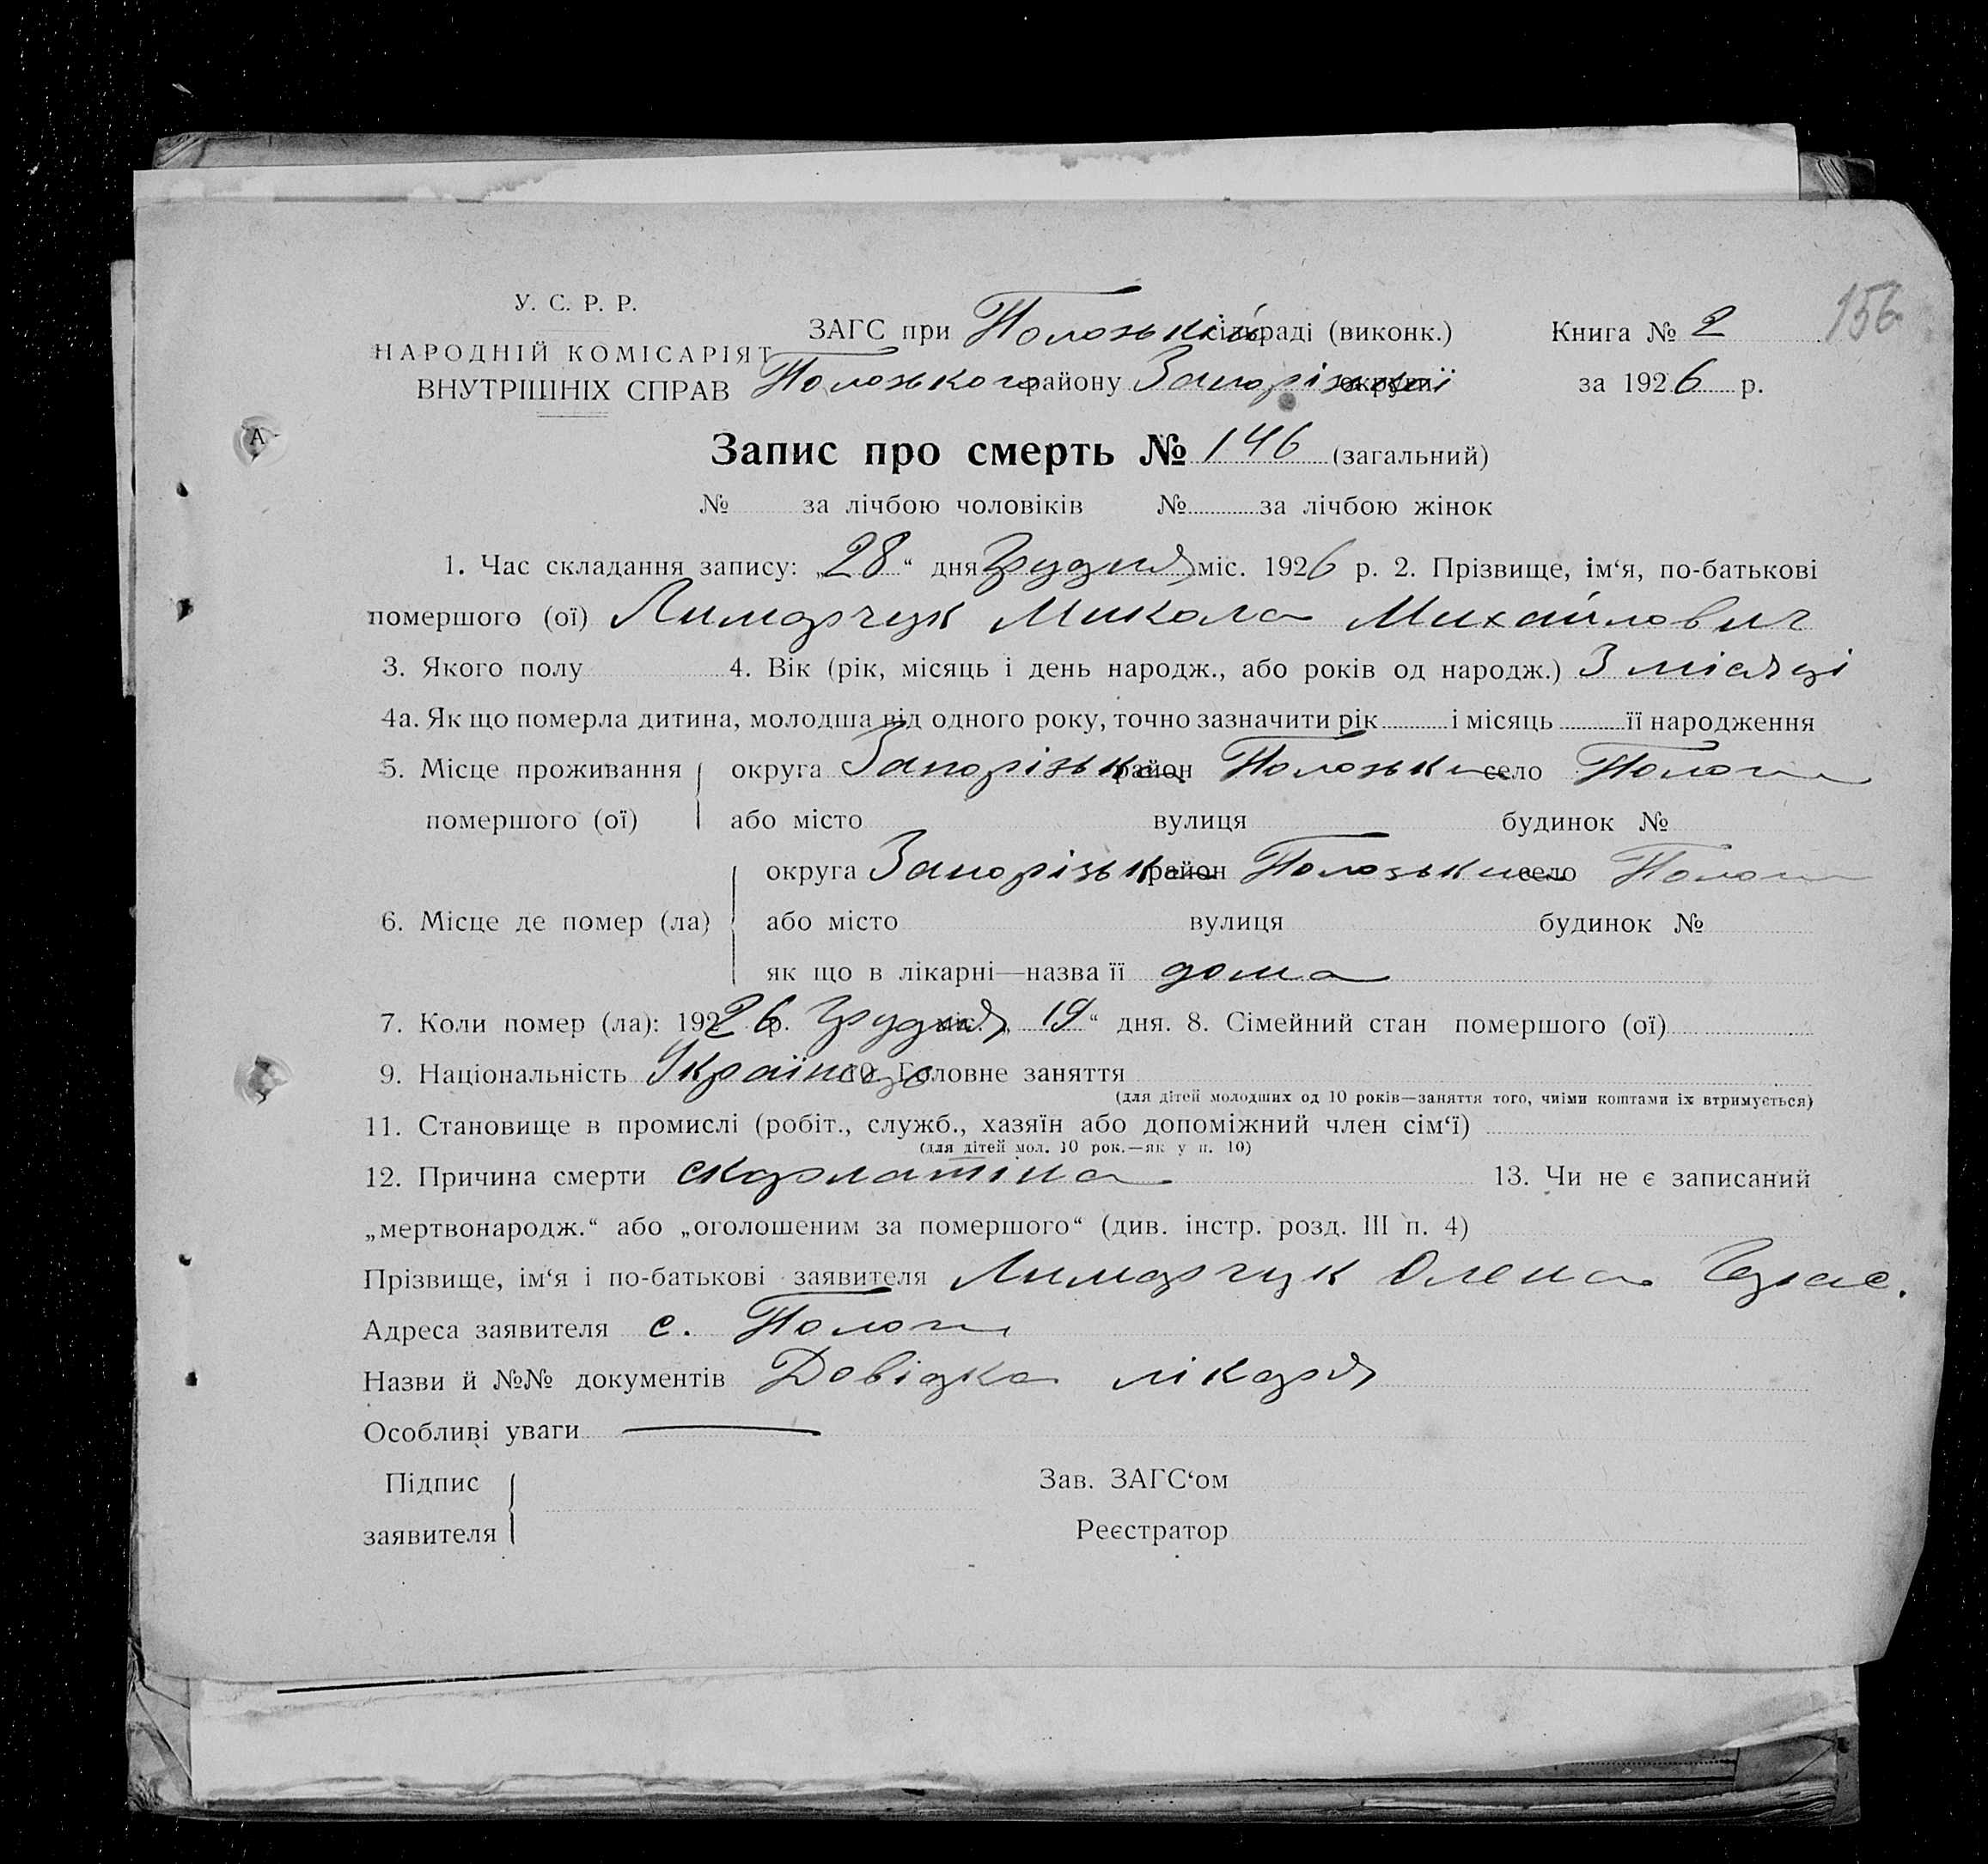 156
У. С. Р. Р.
НАРОДНІЙ КОМІСАРІЯТ
ВНУТРІШНІХ СПРАВ
ЗАГС при Пологській сільраді (виконк.) Книга № 2
Пологського району Запорізької округи за 1926 р.
Запис про смерть № 146 (загальний)
№ за лічбою чоловіків № за лічбою жінок
1. Час складання запису: „28“ дня Грудня міс. 1926 р. 2. Прізвище, ім‘я, по-батькові
помершого (ої) Лимарчук Микола Михайлович
3. Якого полу 4. Вік (рік, місяць і день народж., або років од народж.) 3 місяці
4а. Як що померла дитина, молодша від одного року, точно зазначити рік і місяць її народження
5. Місце проживання округа Запорізька район село Пологи
помершого (ої) або місто вулиця будинок №
округа Запорізька район село Пологи
6. Місце де помер (ла) або місто вулиця будинок №
як що в лікарні—назва її дома
7. Коли помер (ла): 1926 р. Грудня міс. „19“ дня. 8. Сімейний стан помершого (ої)
9. Національність 10. Головне заняття
(для дітей молодших од 10 років—заняття того, чиїми коштами їх втримується)
11. Становище в промислі (робіт., служб., хазяїн або допоміжний член сім‘ї)
(для дітей мол. 10 рок.—як у п. 10)
12. Причина смерти скарлатіна 13. Чи не є записаний
„мертвонародж.“ або „оголошеним за помершого“ (див. інстр. розд. III п. 4)
Прізвище, ім‘я і по-батькові заявителя Лимарчук Олена
Адреса заявителя с. Пологи
Назви й №№ документів Довідка лікаря
Особливі уваги
Підпис Зав. ЗАГС‘ом
заявителя Реєстратор